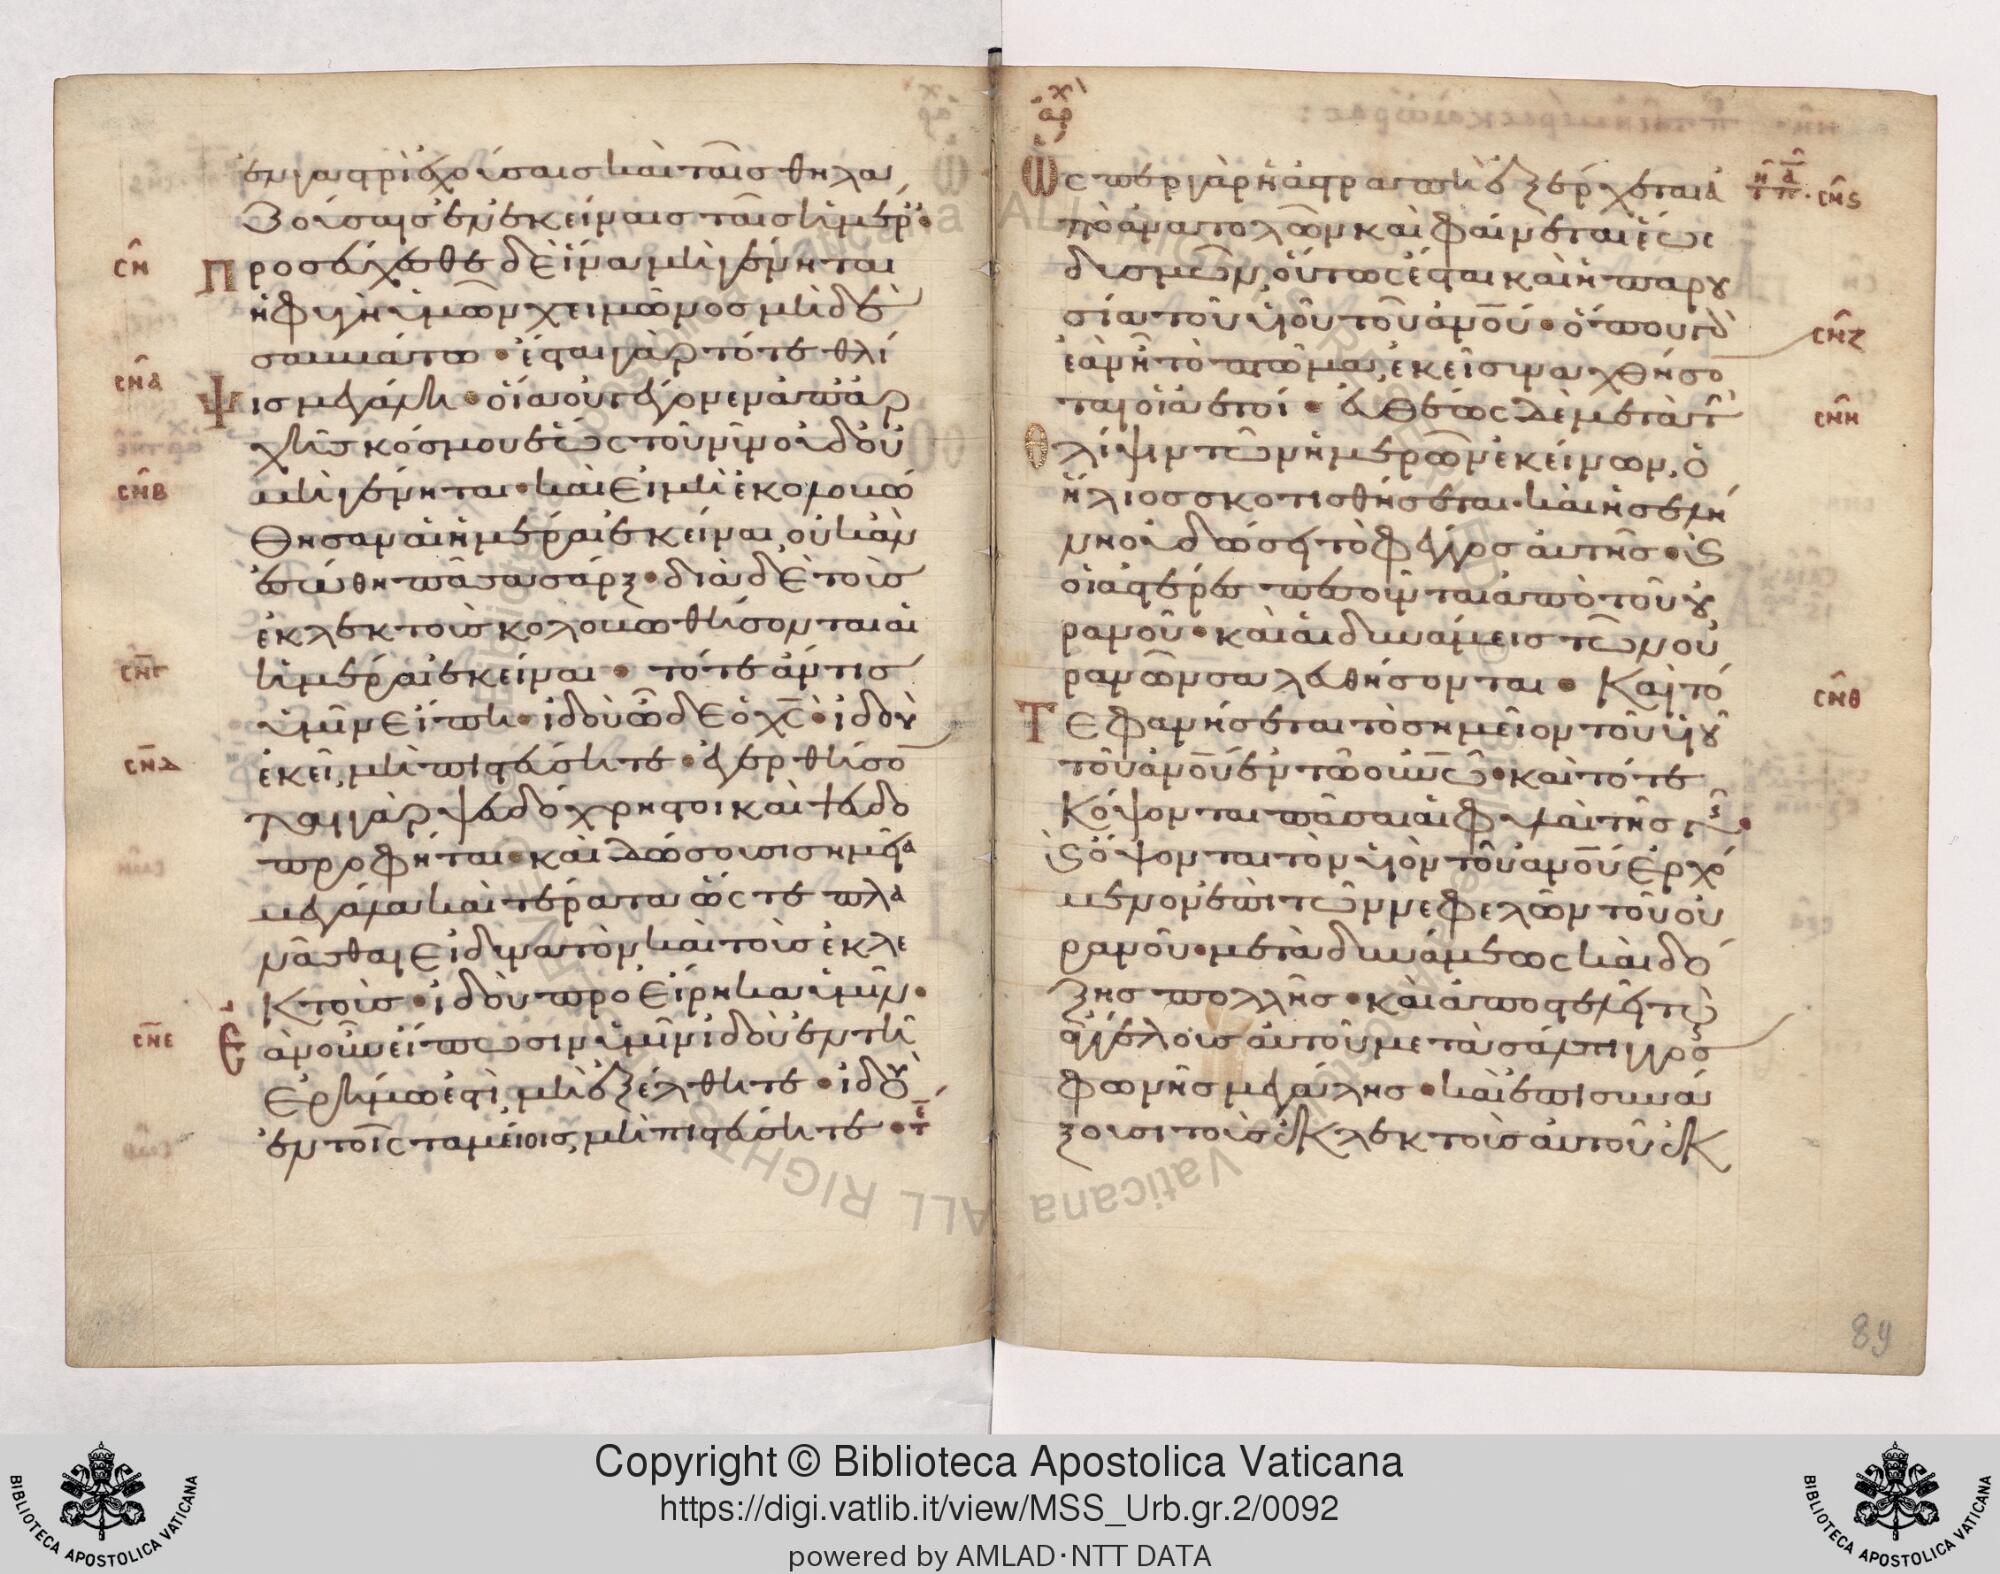 ἐν γαστρὶ ἐχούσαις καὶ ταῖς θηλα
ζούσαις ἐν ἐκείναις ταῖς ἡμέρ·
CΗ
Προσεύχεσθε δὲ ἵνα μὴ γένηται
ἡ φυγὴ ὑμῶν χειμῶνος μηδὲ
σαββάτω · ἔσται γὰρ τότε θλί
CΗΑ
ψις μεγάλη · οἵα οὐ γέγονεν ἀπ' ἀρ
χῆς κόσμου ἕως τοῦ νῦν οὐδ' οὐ
CΗΒ
μὴ γένηται · καὶ εἰ μὴ ἐκολοβώ
θησαν αἱ ἡμέραι ἐκείναι, οὐκ ἂν
ἐσώθη πᾶσα σάρξ · διὰ δὲ τοὺς
ἐκλεκτοὺς κολοβωθήσονται αἱ
CΗΓ
ἡμέραι ἐκείναι · τότε ἄν τις
ὑμῖν εἴπη · ἰδοὺ ὧδε ὁ χς · ἰδοὺ
CΗΔ
ἐκεῖ, μὴ πιστεύσητε · ἐγερθήσο
νται γὰρ ψευδόχρηστοι καὶ ψευδο
προφῆται · καὶ δώσουσι σημεῖα
μεγάλα καὶ τέρατα ὥς τε πλα
νᾶσθαι εἰ δυνατὸν, καὶ τοὺς ἐκλε
κτούς · ἰδοὺ προείρηκα ὑμῖν ·
CΗΕ
Ἐὰν οὖν εἴπωσιν ὑμῖν ἰδοὺ ἐν τῆ
ἐρήμω ἐστὶ μὴ ἐξέλθητε · ἰδοὺ
ἐν τοῖς ταμείοις, μὴ πιστεύσητε ·
ἀρχ
Ὥσπερ γὰρ ἡ ἀστραπὴ ἐξέρχεται ἀ
CΗϚ
πὸ ἀνατολῶν καὶ φαίνεται ἕως
δυσμῶν, οὕτως ἔσται καὶ ἡ παρου
σία τοῦ υἱοῦ τοῦ ἀνου · ὅπου γὰρ
CΗΖ
ἐὰν ἦ τὸ πτῶμα, ἐκεῖ συναχθήσο
ται οἱ ἀετοί · εὐθέως δὲ μετὰ τ
CΗΗ
θλίψιν τῶν ἡμερῶν ἐκείνων, ὁ
ἥλιος σκοτισθήσεται · καὶ ἡ σελή
νη οὐ δώσει τὸ φέγγος αὐτῆς · καὶ
οἱ ἀστέρες πεσοῦνται ἀπὸ τοῦ οὐ
ρανοῦ · καὶ αἱ δυνάμεις τῶν οὐ
ρανῶν σαλευθήσονται · Καὶ τό
CΗΘ
Τε φανήσεται τὸ σημεῖον τοῦ υἱοῦ
τοῦ ἀνου ἐν τῶ οὐνω · καὶ τότε
Κόψονται πᾶσαι αἱ φυλαὶ τῆς γῆς ·
καὶ ὄψονται τὸν υἱὸν τοῦ ἀνου ἐρχό
μενον ἐπὶ τῶν νεφελῶν τοῦ οὐ
ρανοῦ · μετὰ δυνάμεως καὶ δό
ξης πολλῆς · καὶ ἀποστελεῖ τοὺς
ἀγγέλους αὐτοῦ μετὰ σάλπιγγος
φωνῆς μεγάλης · καὶ ἐπισυνά
ξουσι τοὺς ἐκλεκτοὺς αὐτοῦ ἐκ
89
Copyright © Biblioteca Apostolica Vaticana
https://digi.vatlib.it/view/MSS_Urb.gr.2/0092
powered by AMLAD·NTT DATA
BIBLIOTECA APOSTOLICA VATICANA
BIBLIOTECA APOSTOLICA VATICANA